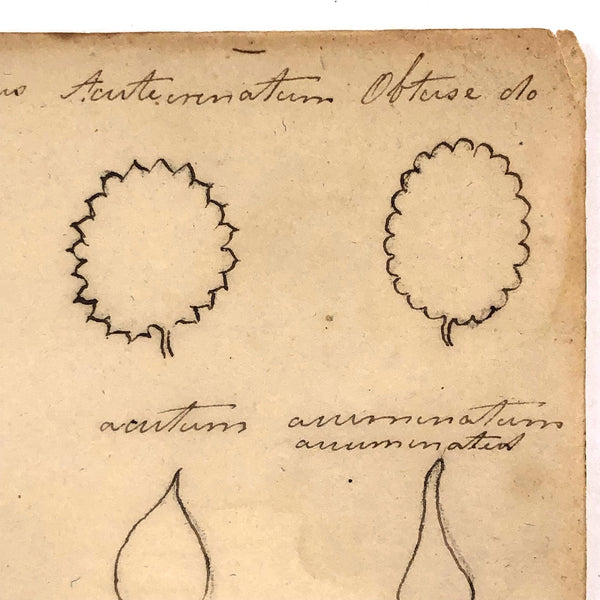 Acute crenatum Obtuse do
acutum acuminatum
acuminated